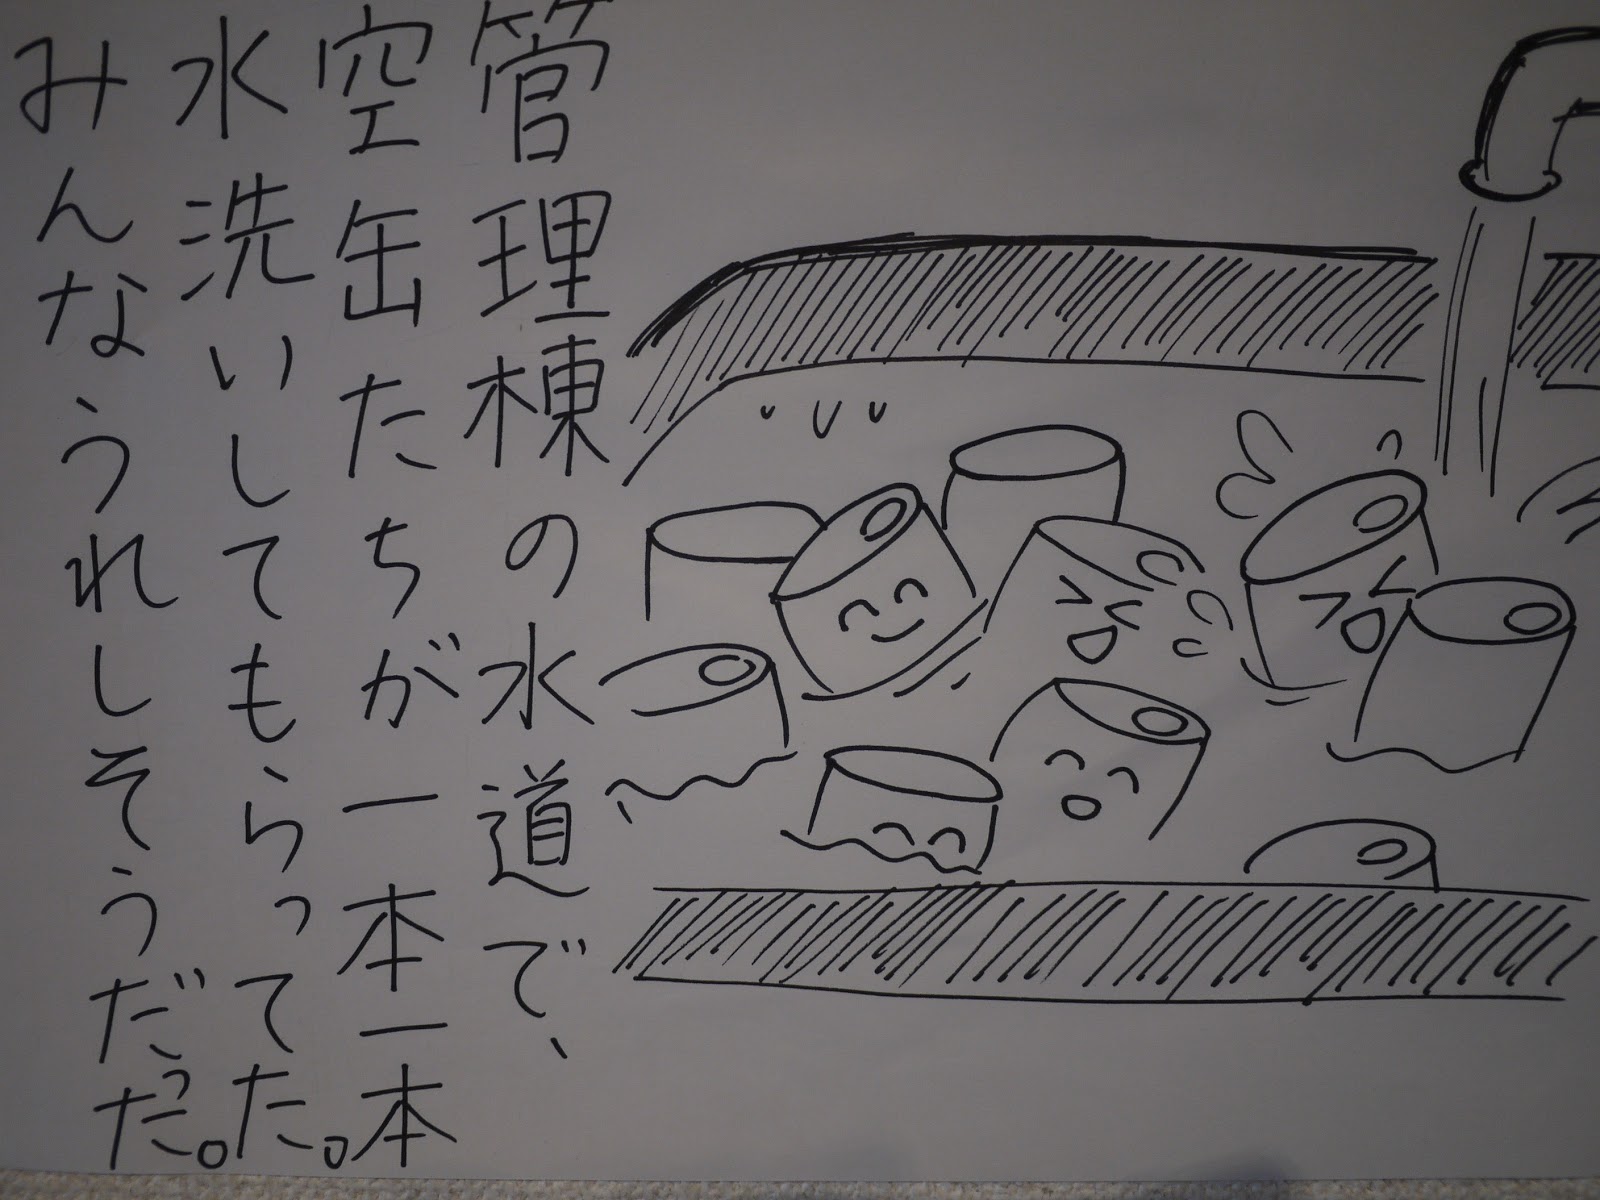 管理棟の水道で、
空缶たちが一本一本
水洗いしてもらってた。
みんなうれしそうだっだ。